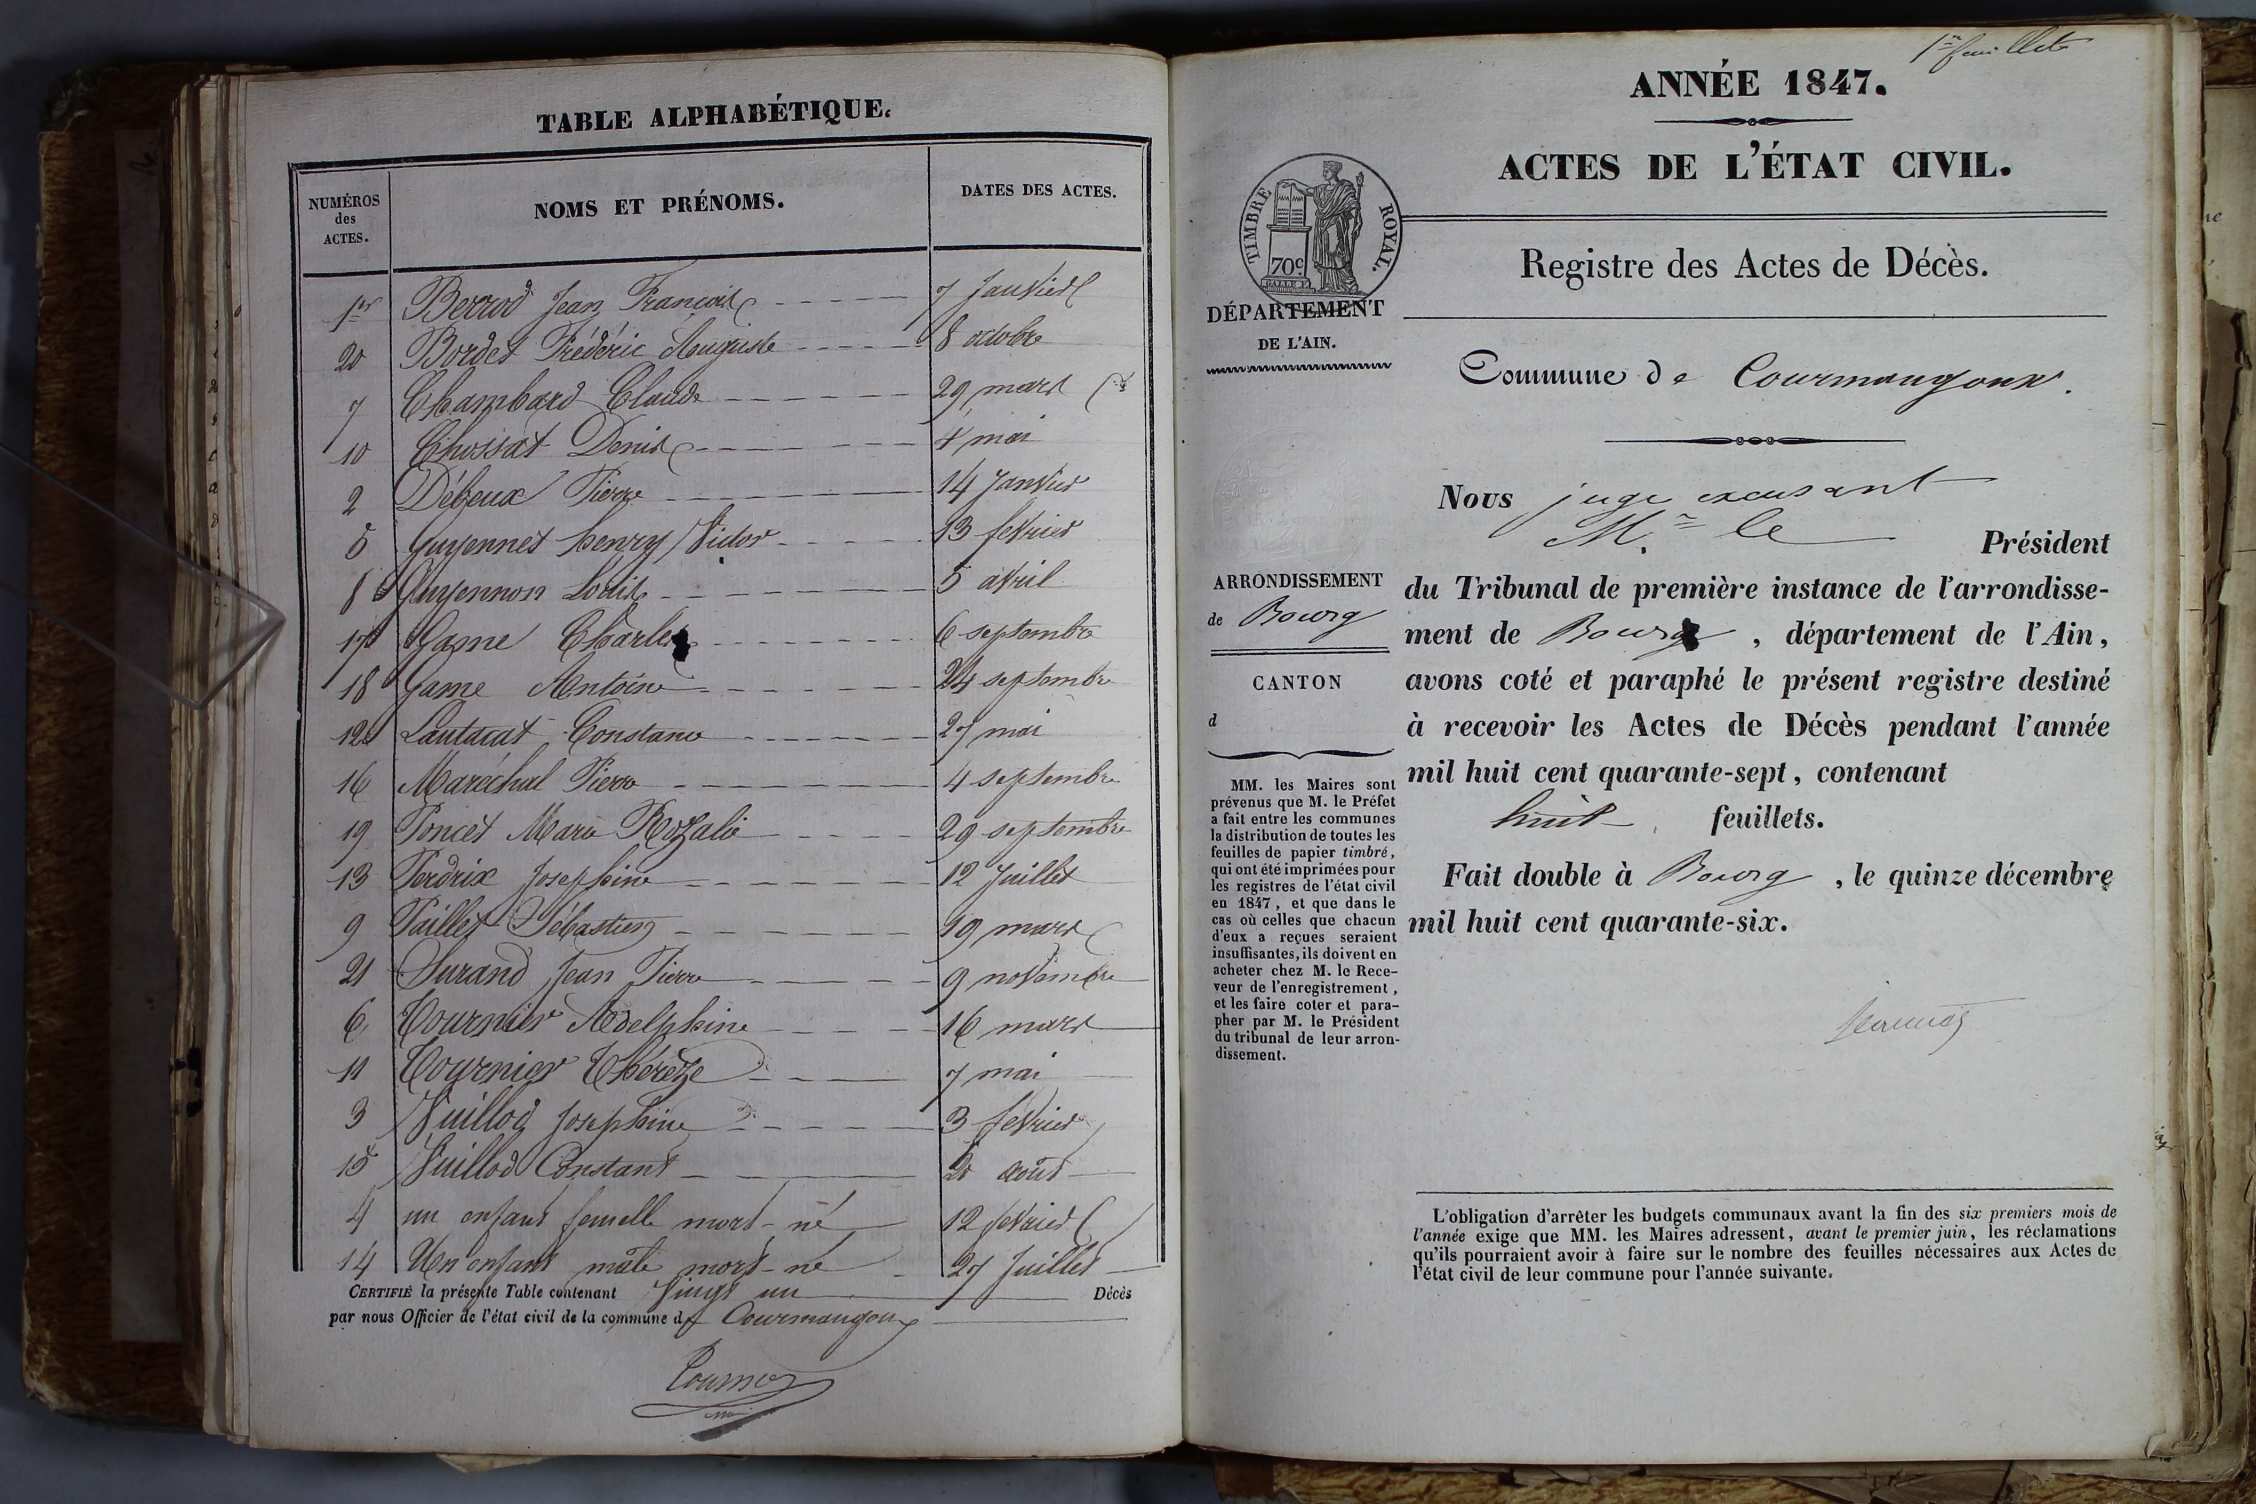 TABLE ALPHABÉTIQUE.
NUMÉROS des ACTES.
NOMS ET PRÉNOMS.
DATES DES ACTES.
1er Berrod Jean François 7 Janvier
20 Bordet Frédéric Auguste 8 octobre
7 Chambard Claude 29 mars
10 Chossat Denis 4 mai
2 Débeux Pierre 14 Janvier
5 Guyennet henry Victor 13 fevrier
8 Guyennon Louis 5 avril
17 Game Charles 6 septembre
18 Game Antoine 24 septembre
12 Lautarat Constance 27 mai
16 Maréchal Pierre 4 septembre
19 Poncet Marie Rozalie 29 septembre
13 Perdrix Josephine 12 Juillet
9 Paillet Sébastien 19 mars
21 Surand Jean Pierre 9 novembre
6 Tournier Adelphine 16 mars
11 Tournier Thérèze 7 mai
3 Vuillod Josephine 3 fevrier
15 Vuillod Constant 20 août
4 un enfant femelle mort-né 12 fevrier
14 Un enfant mâle mort-né 27 Juillet
CERTIFIÉ la présente Table contenant Vingt un Décès
par nous Officier de l'état civil de la commune de Courmangoux
1er feuillet
ANNÉE 1847.
ACTES DE L'ÉTAT CIVIL.
TIMBRE ROYAL.
70c.
DÉPARTEMENT
DE L'AIN.
Registre des Actes de Décès.
Commune de Courmangoux.
Nous juge excusant
M.r le Président
ARRONDISSEMENT
de Bourg
CANTON
d
du Tribunal de première instance de l'arrondisse-
ment de Bourg, département de l'Ain,
avons coté et paraphé le présent registre destiné
à recevoir les Actes de Décès pendant l'année
mil huit cent quarante-sept, contenant
huit feuillets.
Fait double à Bourg, le quinze décembre
mil huit cent quarante-six.
MM. les Maires sont
prévenus que M. le Préfet
a fait entre les communes
la distribution de toutes les
feuilles de papier timbré,
qui ont été imprimées pour
les registres de l'état civil
en 1847, et que dans le
cas où celles que chacun
d'eux a reçues seraient
insuffisantes, ils doivent en
acheter chez M. le Rece-
veur de l'enregistrement,
et les faire coter et para-
pher par M. le Président
du tribunal de leur arron-
dissement.
L'obligation d'arrêter les budgets communaux avant la fin des six premiers mois de
l'année exige que MM. les Maires adressent, avant le premier juin, les réclamations
qu'ils pourraient avoir à faire sur le nombre des feuilles nécessaires aux Actes de
l'état civil de leur commune pour l'année suivante.